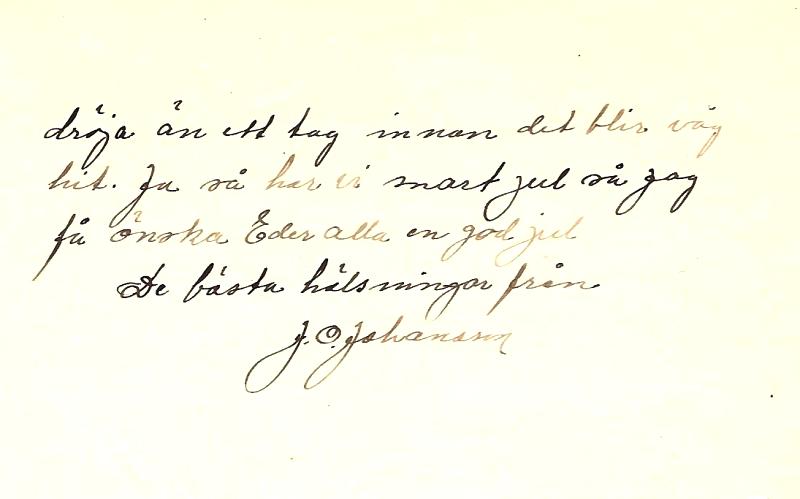 dröja än ett tag innan det blir väg
hit. Ja så har vi snart jul så jag
få önska Eder alla en god jul
De bästa hälsningar från
J. O. Johansson